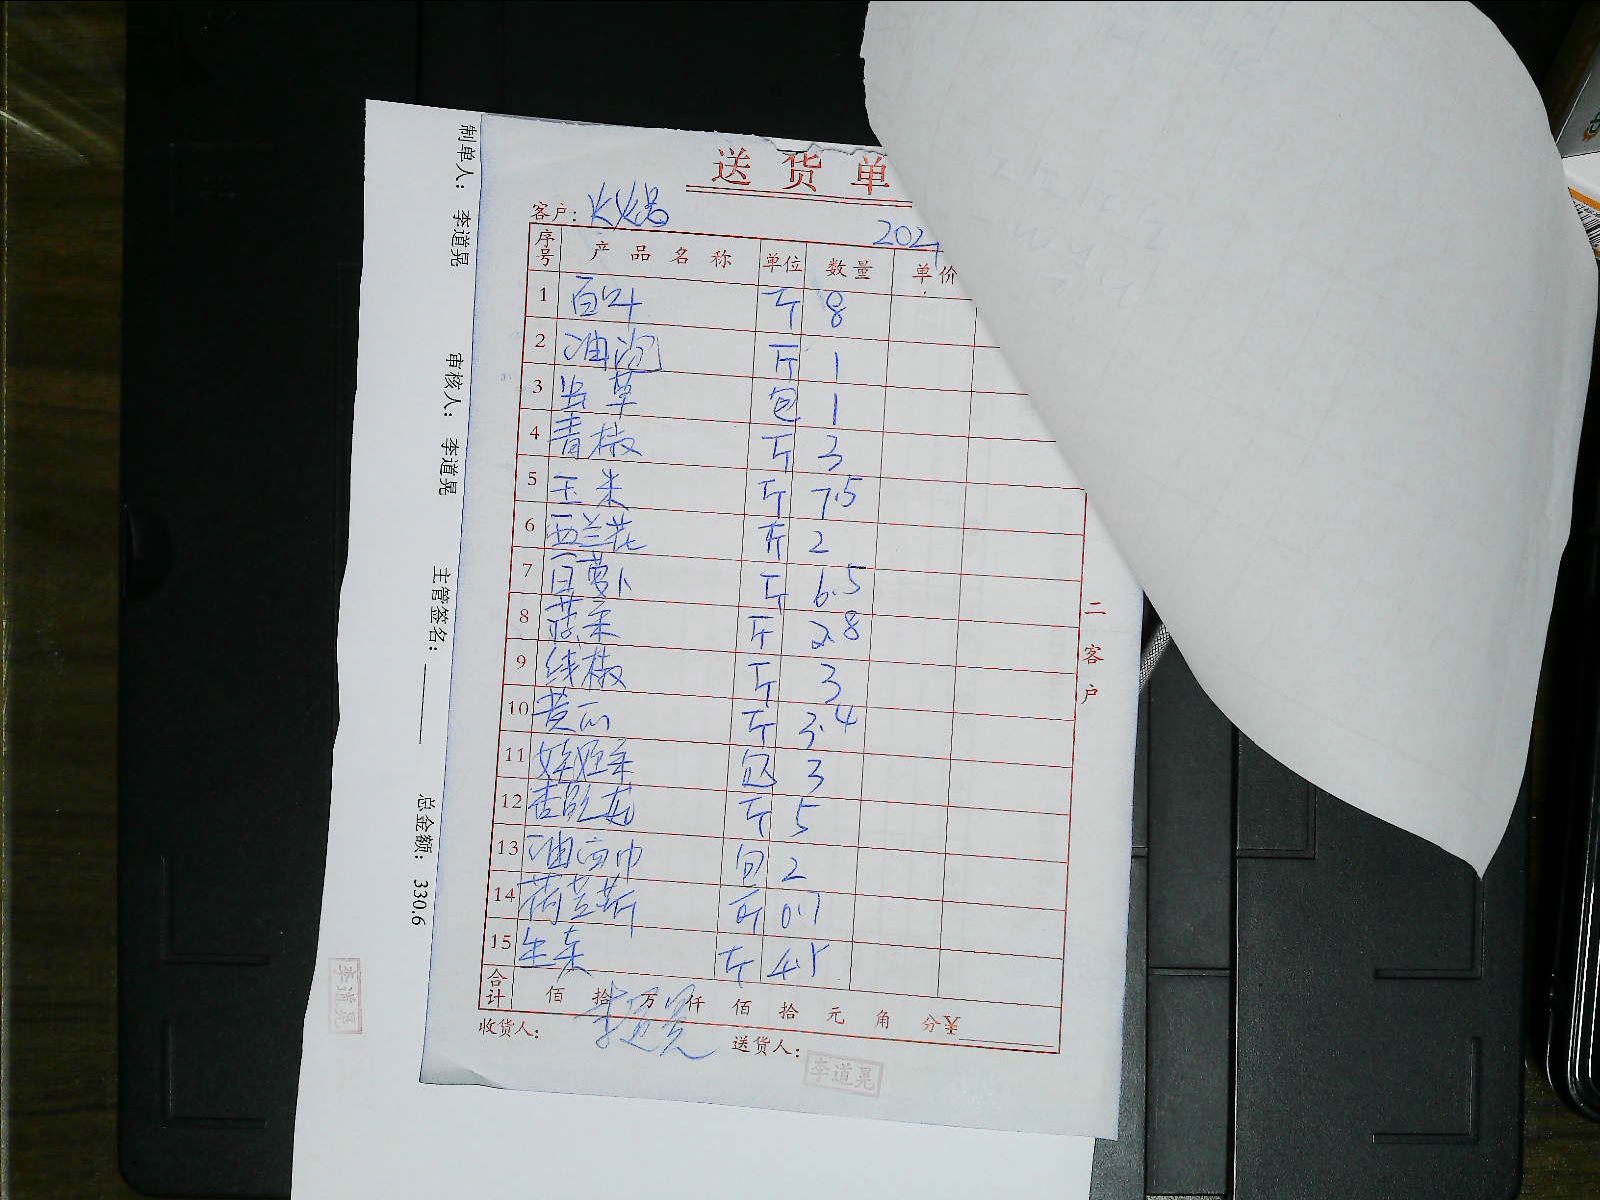 送货单
客户: 火锅
202
序号 产品名称 单位 数量 单价
1 百叶 斤 8
2 油泡 斤 1
3 虫草 包 1
4 青椒 斤 3
5 玉米 斤 7.5
6 西兰花 斤 2
7 白萝卜 斤 6.5
8 菠菜 斤 2.8
9 线椒 斤 3
10 黄瓜 斤 3.4
11 娃娃菜 包 3
12 杏鲍菇 斤 5
13 油面巾 包 2
14 荷兰芹 斤 0.7
15 生菜 斤 4.5
合计 佰 拾 万 仟 佰 拾 元 角 分 ¥
收货人: 李道晃 送货人:
李道晃
二客户
制单人: 李道晃 审核人: 李道晃 主管签名: 总金额: 330.6
李道晃